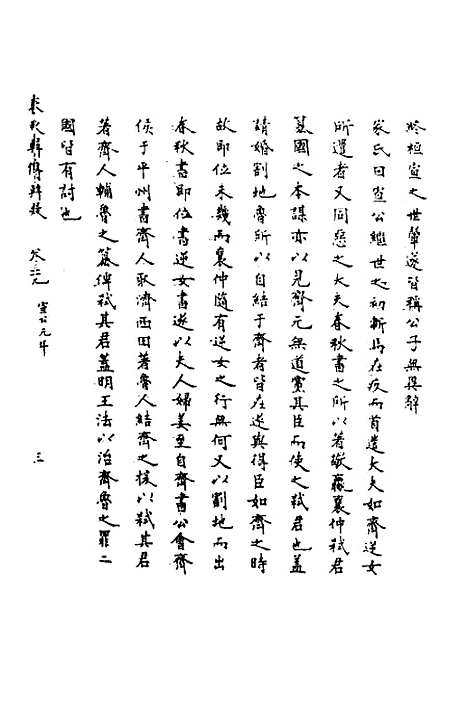 終桓宣之世翬遂皆稱公子無異辭
家氏曰宣公繼世之初斬焉在疚而首遣大夫如齊逆女
所遣者又同惡之大夫春秋書之所以著敬嬴襄仲弑君
篡國之本謀亦以見齊元無道黨其臣而使之弑君也蓋
請婚割地魯所以自結于齊者皆在遂與得臣如齊之時
故即位未幾而襄仲隨有逆女之行無何又以割地而出
春秋書即位書逆女書遂以夫人婦姜至自齊書公會齊
侯于平州書齊人取濟西田著魯人結齊之援以弑其君
著齊人輔魯之篡俾弑其君蓋明王法以治齊魯之罪二
國皆有討也
春秋輯傳辨疑 卷三十九 宣公元年 三